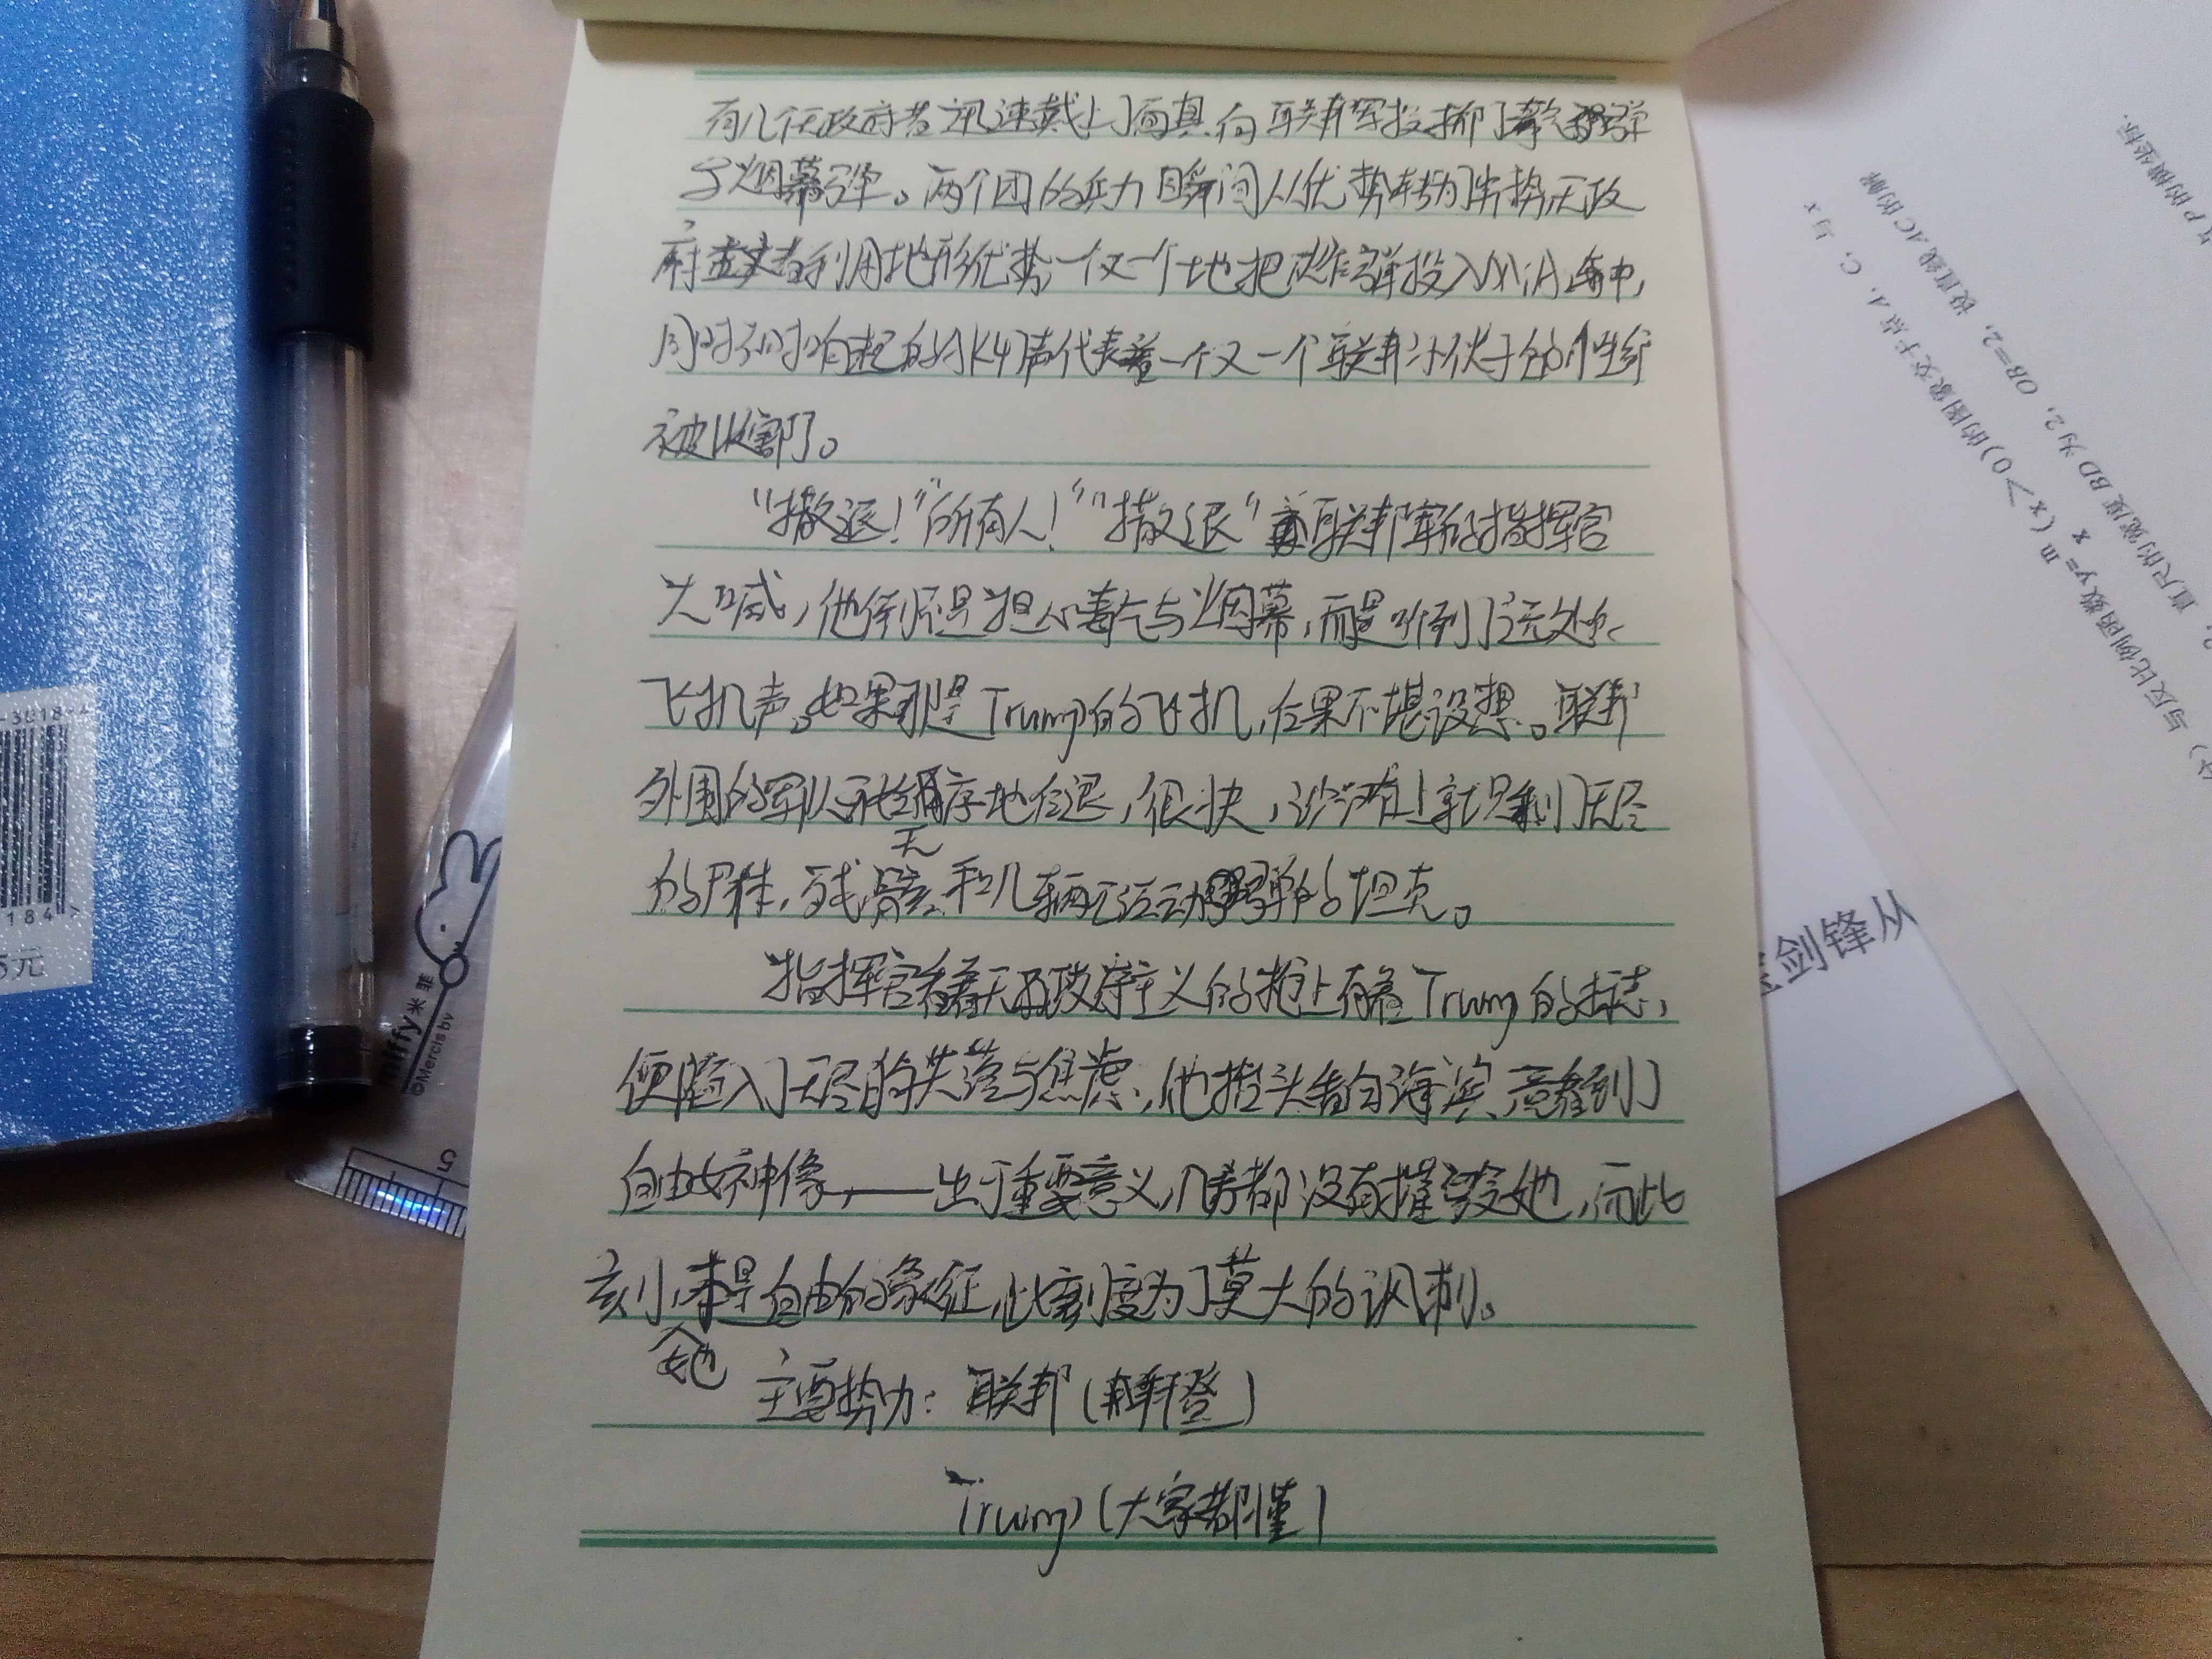 有几个无政府者迅速戴上了面具,向联邦军投掷了毒气弹
与烟幕弹。两个团的兵力瞬间从优势转为劣势,无政
府主义者利用地形优势,一个又一个地把炸弹投入M1A1海中,
同时不时响起的AK47声代表着一个又一个联邦小伙子的性命
被收割了。
"撤退!""所有人!""撤退"联邦军的指挥官
大喊,他倒不是担心毒气与烟幕,而是听到了远处的
飞机声。如果那是Trump的飞机,后果不堪设想。联邦
外围的军队无序地后退,很快,沙滩上就只剩了无尽
的尸体,残骸和几辆无法动弹的坦克。
指挥官看着无政府主义的枪上有着Trump的标志,
便陷入了无尽的失落与焦虑,他抬头看向海滨,看到了
自由女神像,——出于重要意义,几方都没有摧毁她,而此
刻,她本是自由的象征,此刻变为了莫大的讽刺。
主要势力:联邦(拜登)
Trump(大家都懂)
miffy米菲
©Mercis bv
5
184>
5元
宝剑锋从
与反比例函数y=m/x(x>0)的图象交于点A、C,与x
直尺的宽度BD为2,OB=2,设直线AC的解
P的横坐标.